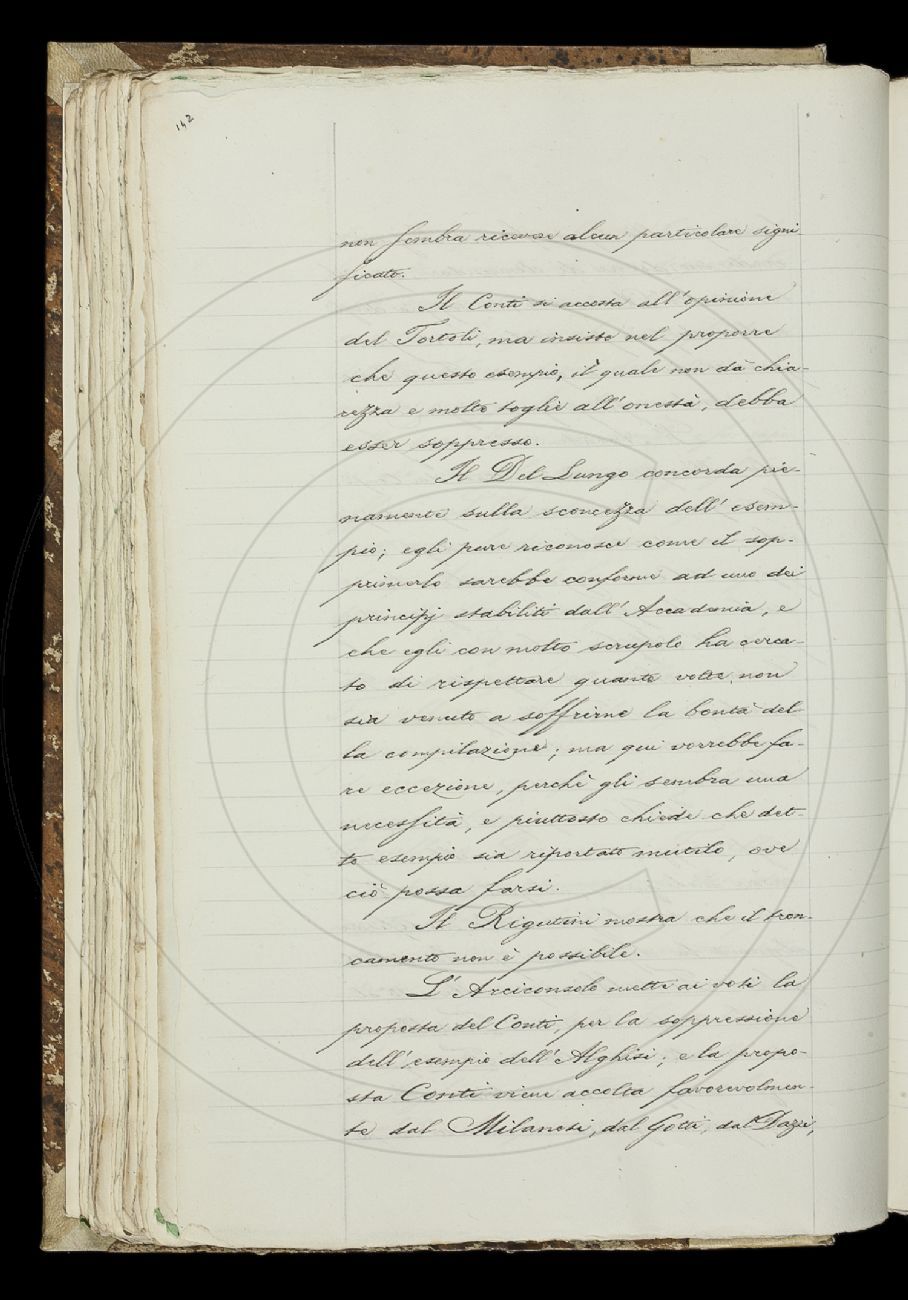 142
non sembra ricevere alcun particolare signi
ficato.
Il Conti si accosta all'opinione
del Tortoli, ma insiste nel proporre
che questo esempio, il quale non dà chia-
rezza e molto toglie all'onestà, debba
esser soppresso.
Il Del Lungo concorda pie-
namente sulla sconcezza dell'esem-
pio; egli pure riconosce come il sop-
primerlo sarebbe conforme ad uno dei
principj stabiliti dall'Accademia, e
che egli con molto scrupolo ha cerca-
to di rispettare quante volte non
sia venuto a soffrirne la bontà del
la compilazione; ma qui vorrebbe fa-
re eccezione, perchè gli sembra una
necessità, e piuttosto chiede che det-
to esempio sia riportato mutilo, ove
ciò possa farsi.
Il Rigutini mostra che il tron-
camento non è possibile.
L'Arciconsolo mette ai voti la
proposta del Conti, per la soppressione
dell'esempio dell'Alghisi; e la propo-
sta Conti viene accolta favorevolmen-
te dal Milanesi, dal Gotti, dal Dazzi,